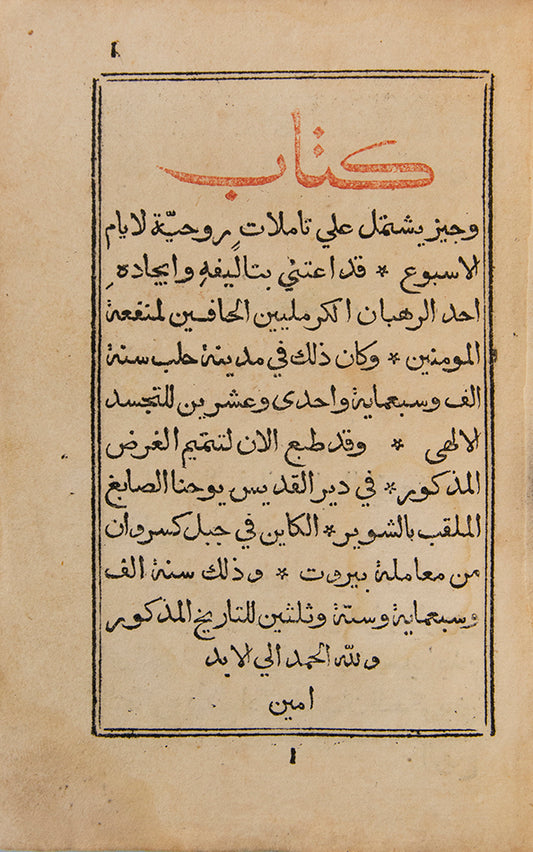 ١
كتاب
وجيز يشتمل علي تاملات روحيّة لايام
الاسبوع * قد اعتني بتاليفهِ وايجادهِ
احد الرهبان الكرمليين الحافيين لمنفعة
المومنين * وكان ذلك في مدينة حلب سنة
الف وسبعماية واحدى وعشرين للتجسد
الالهي * وقد طبع الان لتتميم الغرض
المذكور * في دير القديس يوحنا الصابغ
الملقب بالشوير * الكاين في جبل كسروان
من معاملة بيروت * وذلك سنة الف
وسبعماية وستّة وثلثين للتاريخ المذكور
ولله الحمد الي الابد
امين
١